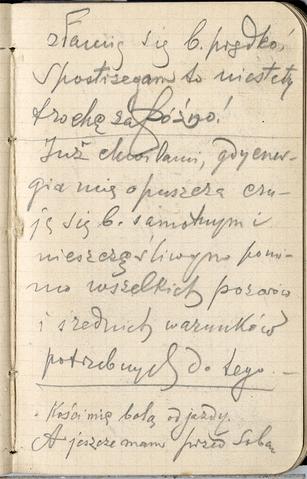 złamię się b. prędko,
Spostrzegam to niestety
trochę za późno!
Już chwilami, gdy ener-
gia mię opuszcza czu-
ję się b. samotnym i
nieszczęśliwym pomi-
mo wszelkich pozorów
i średnich warunków
potrzebnych do tego. —
Kości mię bolą od jazdy.
A jeszcze mam przed Sobą